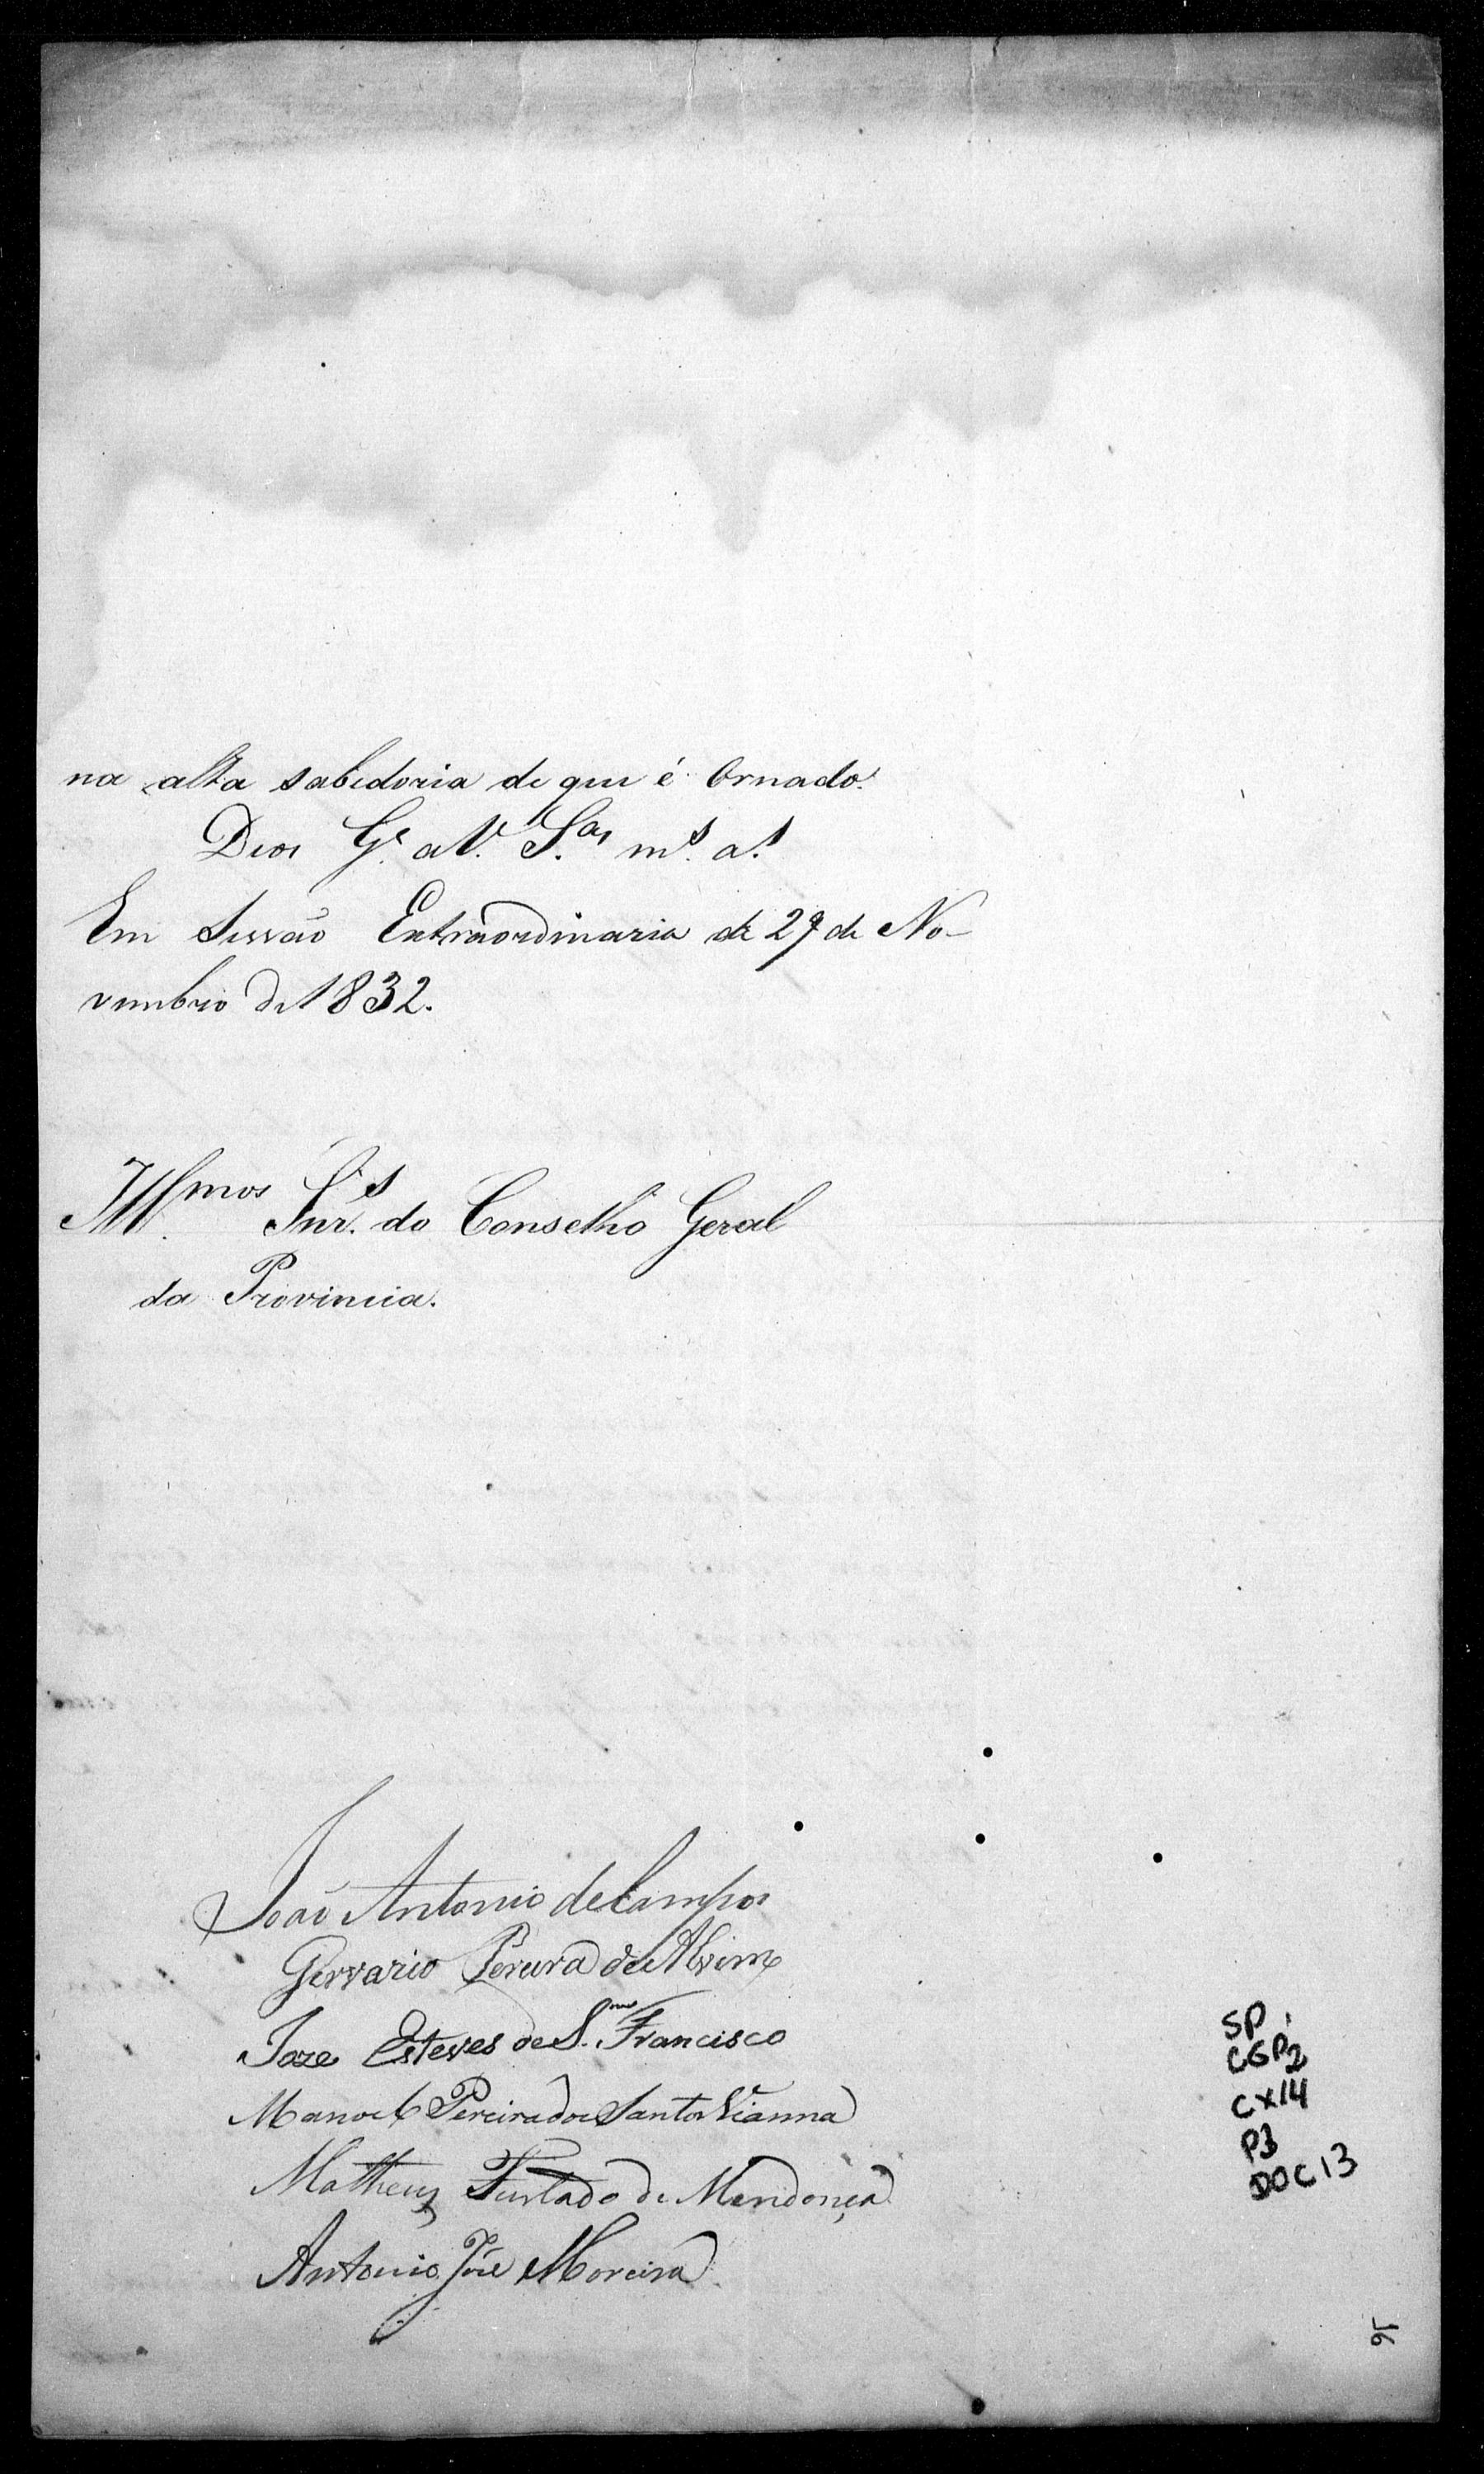 na alta sabedoria de que é Ornado.
Deos G.e a V. S.as m.s a.s
Em Sessão Extraordinaria de 27 de No-
vembro de 1832.
Ill.mos Snr.s do Conselho Geral
da Provincia.
João Antonio de Campos
Gervazio Pereira de Alvim
Joze Esteves de S. Francisco
Manoel Pereira dos Santos Vianna
Matheus Furtado de Mendonça
Antonio José Moreira
SP
CGP2
CX14
P3
DOC13